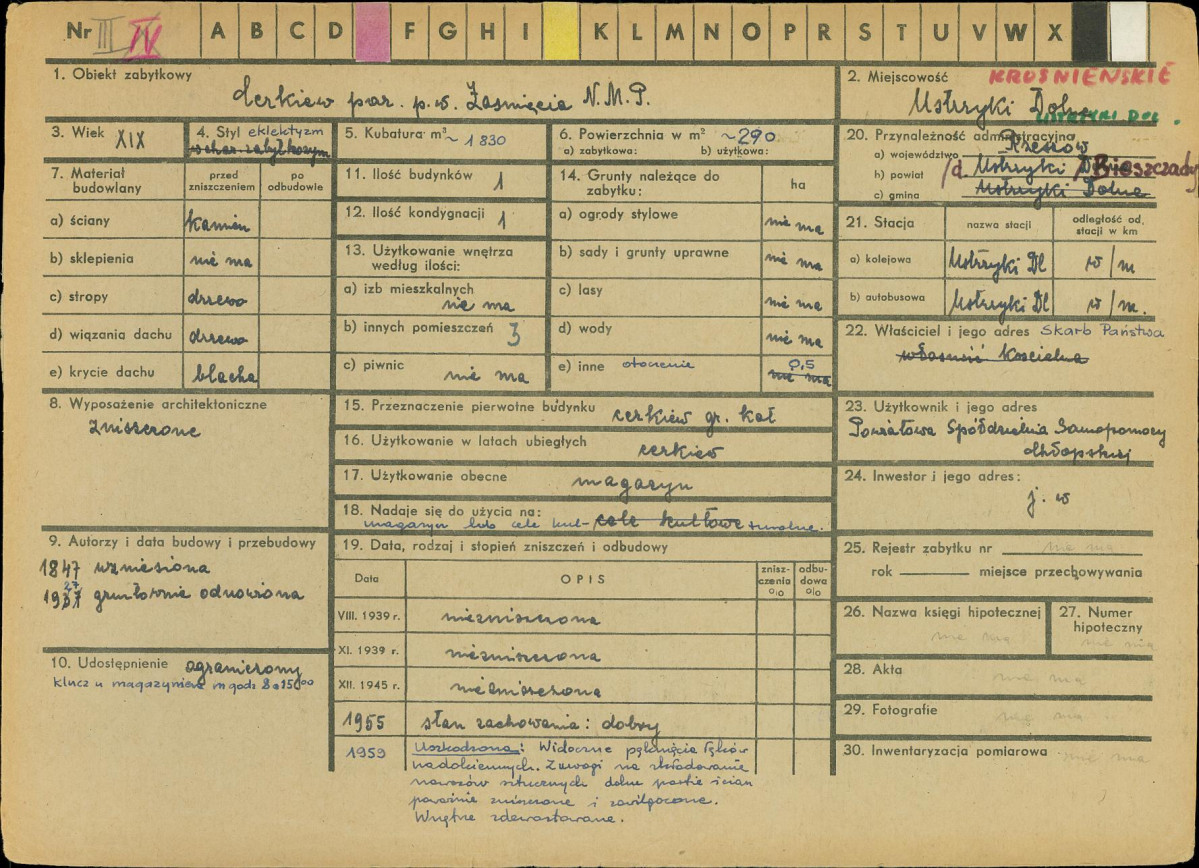 Nr III IV A B C D F G H I K L M N O P R S T U V W X
1. Obiekt zabytkowy
Cerkiew par. p.w. Zaśnięcia N.M.P.
2. Miejscowość KROŚNIEŃSKIE
Ustrzyki Dolne
USTRZYKI DOL.
3. Wiek XIX
4. Styl eklektyzm
5. Kubatura m³ ~ 1830
6. Powierzchnia w m² ~290
a) zabytkowa: b) użytkowa:
7. Materiał budowlany
przed zniszczeniem
po odbudowie
a) ściany kamień
b) sklepienia nie ma
c) stropy drzewo
d) wiązania dachu drzewo
e) krycie dachu blacha
8. Wyposażenie architektoniczne
zniszczone
9. Autorzy i data budowy i przebudowy
1847 wzniesiona
1937 27 gruntownie odnowiona
10. Udostępnienie ograniczony
klucz u magazyniera w godz 8 a 15⁰⁰
11. Ilość budynków 1
12. Ilość kondygnacji 1
13. Użytkowanie wnętrza
według ilości:
a) izb mieszkalnych
nie ma
b) innych pomieszczeń 3
c) piwnic nie ma
14. Grunty należące do
zabytku:
ha
a) ogrody stylowe nie ma
b) sady i grunty uprawne nie ma
c) lasy nie ma
d) wody nie ma
e) inne otoczenie 0,5
nie ma
15. Przeznaczenie pierwotne budynku cerkiew gr. kat
16. Użytkowanie w latach ubiegłych cerkiew
17. Użytkowanie obecne magazyn
18. Nadaje się do użycia na: cele kultowe
magazyn lub cele kul- turalne.
19. Data, rodzaj i stopień zniszczeń i odbudowy
Data
OPIS
znisz-
czenia
%
odbu-
dowa
%
VIII. 1939 r. niezniszczona
XI. 1939 r. niezniszczona
XII. 1945 r. niezniszczona
1955 stan zachowania: dobry
1959 Uszkodzona: Widoczne pęknięcia łęków
nadościennych. Z uwagi na składowanie
nawozów sztucznych dolne partie ścian
poważnie zniszczone i zawilgocone.
Wnętrze zdewastowane.
20. Przynależność administracyjna
a) województwo Rzeszów
b) powiat Ustrzyki D. /d. Bieszczady
c) gmina Ustrzyki Dolne
21. Stacja
nazwa stacji
odległość od.
stacji w km
a) kolejowa Ustrzyki Dl w/m
b) autobusowa Ustrzyki Dl w/m.
22. Właściciel i jego adres Skarb Państwa
własność Kościelna
23. Użytkownik i jego adres
Powiatowa Spółdzielnia Samopomocy
Chłopskiej
24. Inwestor i jego adres:
j. w
25. Rejestr zabytku nr nie ma
rok miejsce przechowywania
26. Nazwa księgi hipotecznej
nie ma
27. Numer
hipoteczny
nie ma
28. Akta
nie ma
29. Fotografie
nie ma
30. Inwentaryzacja pomiarowa nie ma